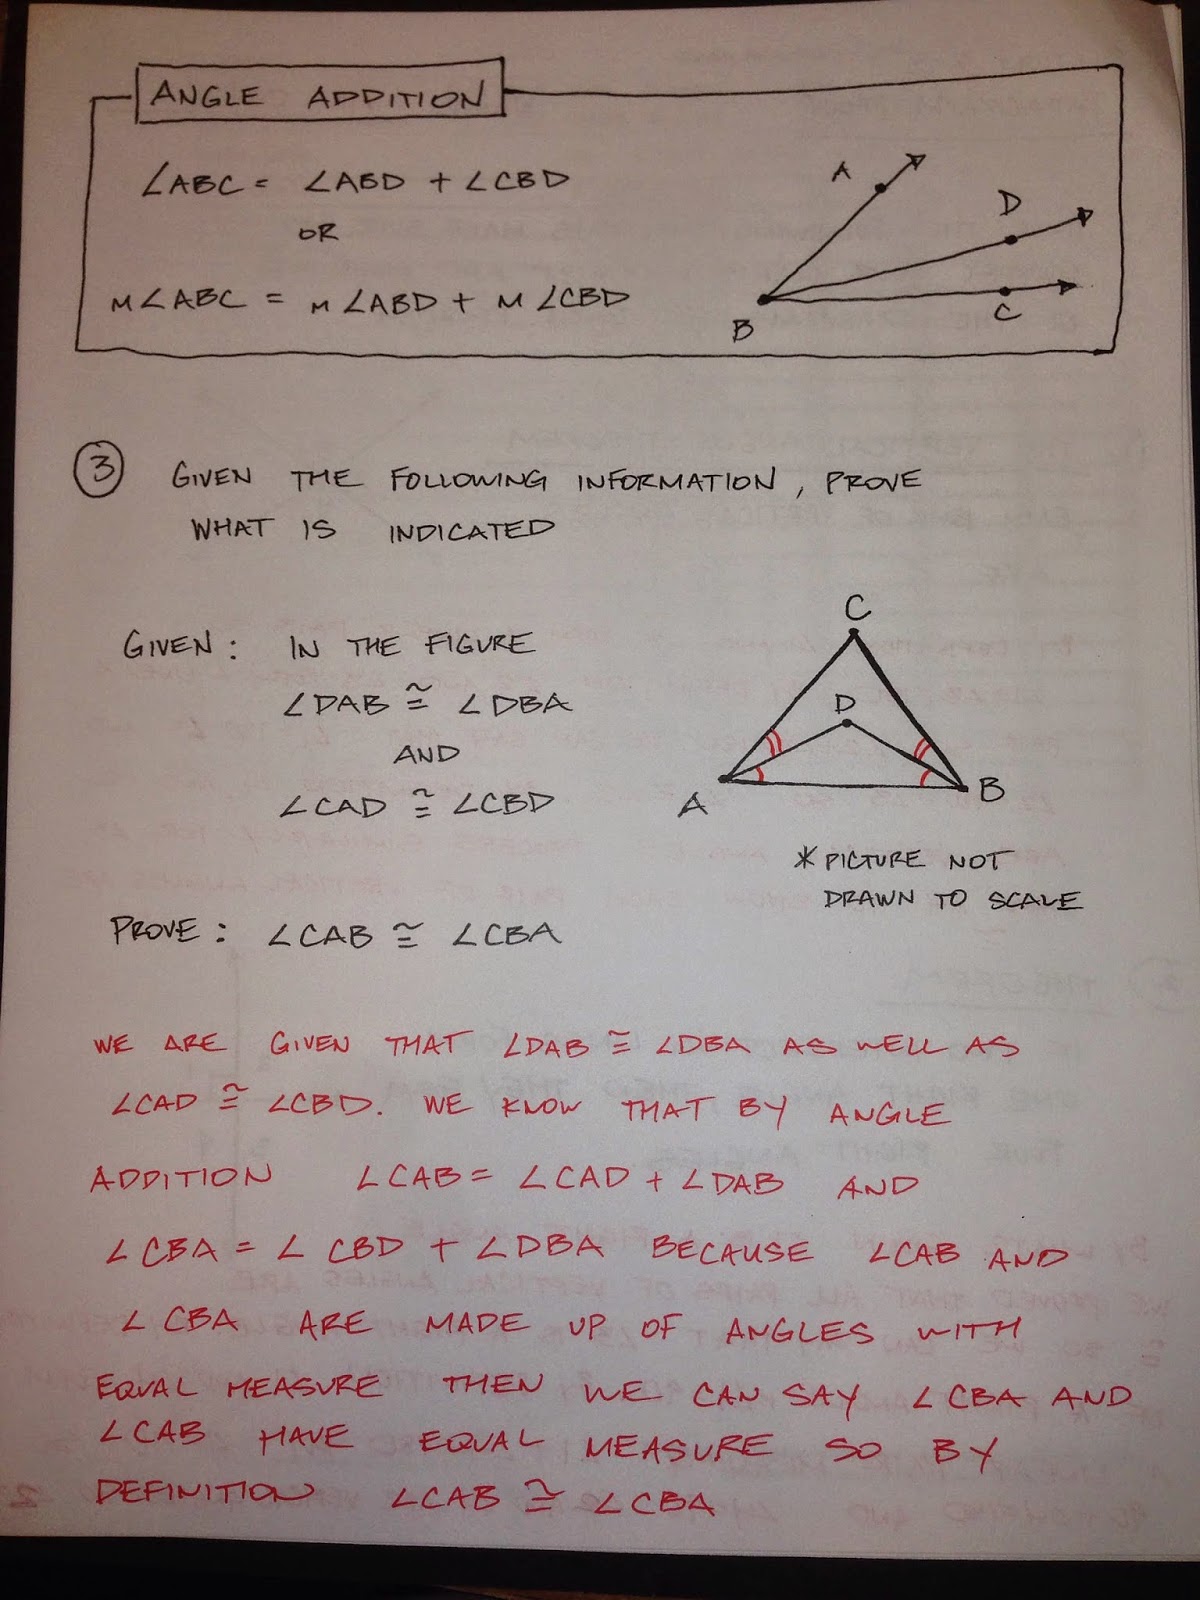 ANGLE ADDITION
∠ABC = ∠ABD + ∠CBD
OR
m∠ABC = m∠ABD + m∠CBD
A
D
B
C
3 GIVEN THE FOLLOWING INFORMATION, PROVE
WHAT IS INDICATED
GIVEN: IN THE FIGURE
∠DAB ≅ ∠DBA
AND
∠CAD ≅ ∠CBD
C
D
A
B
* PICTURE NOT
DRAWN TO SCALE
PROVE: ∠CAB ≅ ∠CBA
WE ARE GIVEN THAT ∠DAB ≅ ∠DBA AS WELL AS
∠CAD ≅ ∠CBD. WE KNOW THAT BY ANGLE
ADDITION ∠CAB = ∠CAD + ∠DAB AND
∠CBA = ∠CBD + ∠DBA BECAUSE ∠CAB AND
∠CBA ARE MADE UP OF ANGLES WITH
EQUAL MEASURE THEN WE CAN SAY ∠CBA AND
∠CAB HAVE EQUAL MEASURE SO BY
DEFINITION ∠CAB ≅ ∠CBA